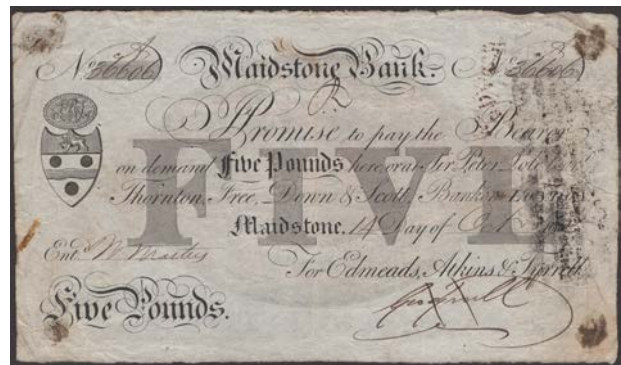 No. 36606 Maidstone Bank. No. 36606
I Promise to pay the Bearer
on demand Five Pounds here or at Sir Peter Pole
Thornton, Free, Down & Scott, Bankers
Maidstone. 14 Day of Oct
FIVE
Entd.
For Edmeads, Atkins & Tyrrell.
Five Pounds.